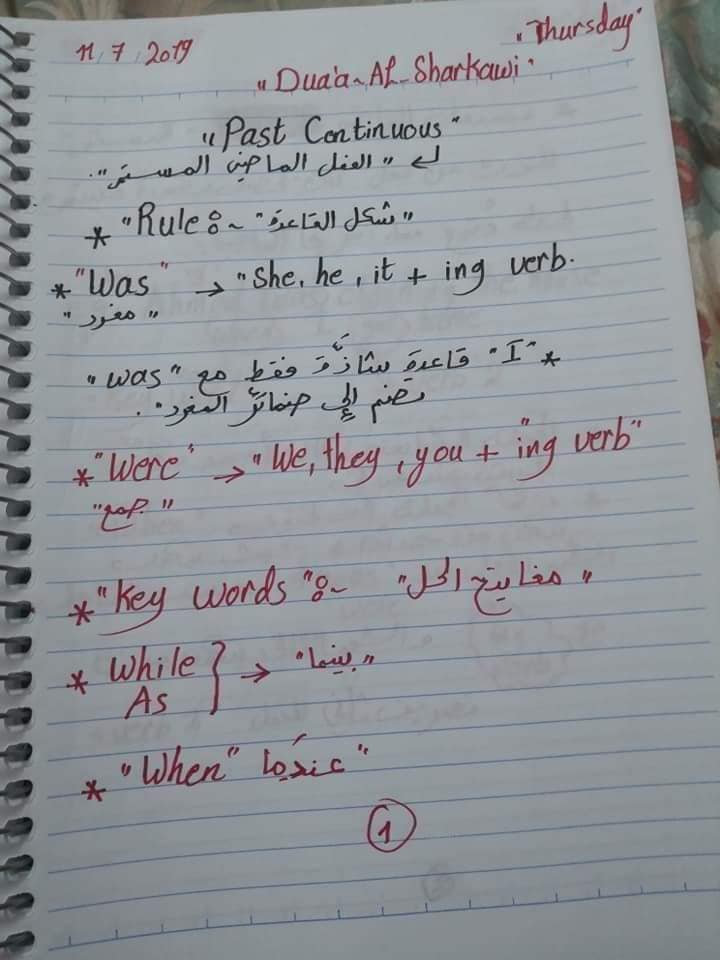 11/7/2019 "Thursday"
"Dua'a-Al-Sharkawi"
"Past Continuous"
"الفعل الماضي المستمر".
* "Rule:~ "شكل القاعدة"
* "Was" → "She, he, it + ing verb.
"مفرد"
* "I" قاعدة شاذَّة فقط مع "was"
تضم إلى ضمائر المفرد".
* "Were" → "We, they, you + "ing verb"
"جمع"
* "Key words":~ "مفايتح الحل"
* While } → "بينما"
As
* "When" عندَما"
1